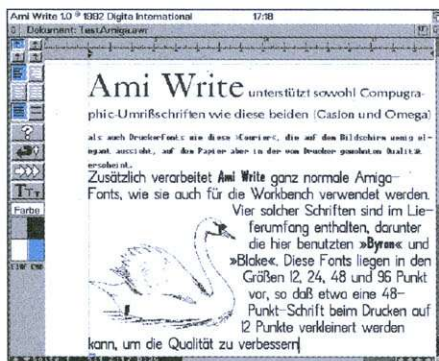 Ami Write 1.0 © 1992 Digita International 17:18
Dokument: Test/Amiga.awr
Ami Write unterstützt sowohl Compugra-
phic-Umrißschriften wie diese beiden (Caslon und Omega)
als auch Druckerfonts wie diese »Courier«, die auf dem Bildschirm wenig el-
egant aussieht, auf dem Papier aber in der vom Drucker gewohnten Qualität
erscheint.
Zusätzlich verarbeitet Ami Write ganz normale Amiga-
Fonts, wie sie auch für die Workbench verwendet werden.
Vier solcher Schriften sind im Lie-
ferumfang enthalten, darunter
die hier benutzten »Byron« und
»Blake«. Diese Fonts liegen in den
Größen 12, 24, 48 und 96 Punkt
vor, so daß etwa eine 48-
Punkt-Schrift beim Drucken auf
12 Punkte verkleinert werden
kann, um die Qualität zu verbessern
?
TTT
Farbe